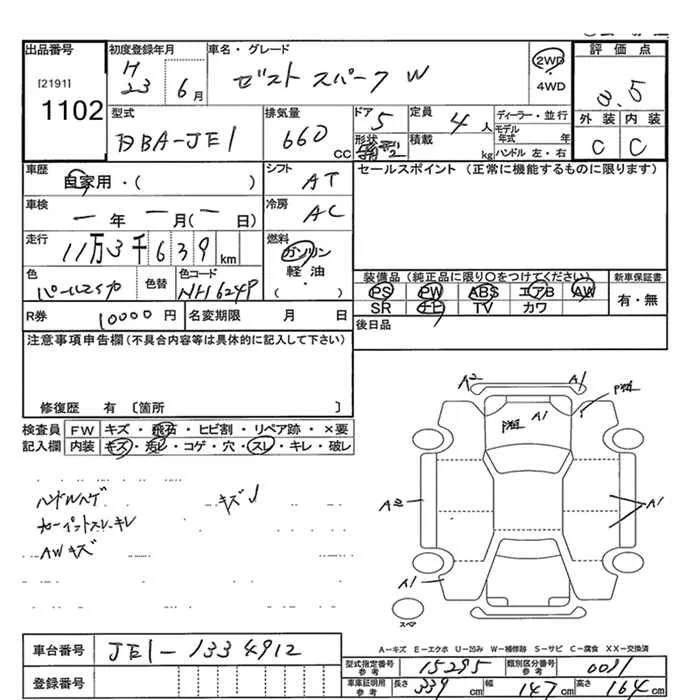 出品番号 初度登録年月 車名・グレード 2WD 評価点
[2191] H23 6月 ゼスト スパーク W ・ 4WD 3.5
1102 型式 排気量 ドア 5 定員 4人 ディーラー・並行 外装 内装
DBA-JE1 660cc 形状 積載 kg モデル年式 年 C C
ハンドル 左・右
車歴 自家用・( ) シフト AT セールスポイント (正常に機能するものに限ります)
車検 一年 一月(一日) 冷房 AC
走行 11万3千639km 燃料 ガソリン
軽油
・
( )
色 色替 色コード 装備品(純正品に限り○をつけてください) 新車保証書
NH624P PS PW ABS エアB AW 有・無
SR ナビ TV カワ
R券 10000円 名変期限 月 日 後日品
注意事項申告欄(不具合内容等は具体的に記入して下さい)
修復歴 有 〔箇所 〕
検査員 FW キズ・飛石・ヒビ割・リペア跡・×要
記入欄 内装 キズ・汚レ・コゲ・穴・スレ・キレ・破レ
ハンドルハゲ キズ
カーペットスレ・キレ
AWキズ
A2 A1
A1
A2 A1
A1
スペア
A-キズ E-エクボ U-凹み W-補修跡 S-サビ C-腐食 XX-交換済
車台番号 JE1-1334912
登録番号
型式指定番号 参考 15295 類別区分番号 参考 0081
車庫証明用 参考 長さ 339cm 幅 147cm 高さ 164cm